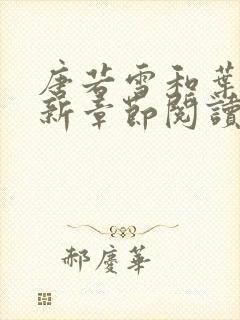 唐若雪和葉
新章節閱讀
郝慶華